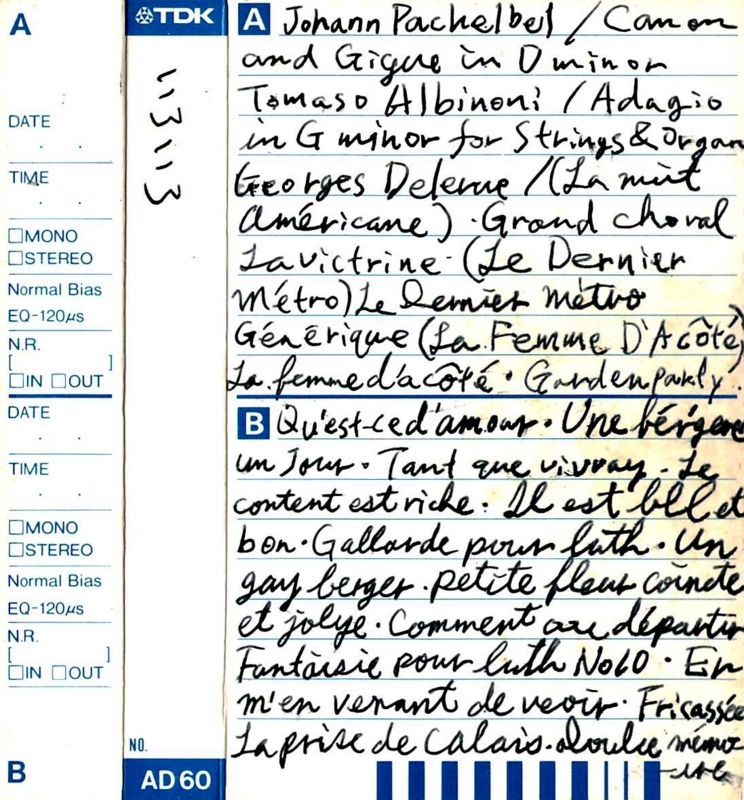 A
DATE
. .
TIME
. .
□MONO
□STEREO
Normal Bias
EQ-120μs
N.R.
[ ]
□IN □OUT
DATE
. .
TIME
. .
□MONO
□STEREO
Normal Bias
EQ-120μs
N.R.
[ ]
□IN □OUT
B
TDK
NO.
AD 60
A Johann Pachelbel / Canon
and Gigue in D minor
Tomaso Albinoni / Adagio
in G minor for Strings & Organ
Georges Delerue / (La nuit
Américane) · Grand choral
La victrine · (Le Dernier
Métro) Le Dernier métro
Générique (La Femme D'Acôté)
La femme d'acôté · Garden party
B Qu'est-ce d'amour · Une bérgere
un Jour · Tant que vivray · Le
content est riche · Il est bll et
bon · Gallarde pour luth · Un
gay berger · petite fleur coincte
et jolye · Comment au départir
Fantaisie pour luth No10 · En
m'en venant de veoir · Fricassée
La prise de Calais · doulce mémo
-ire